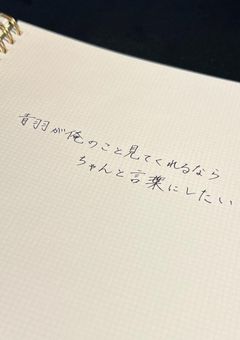 青羽が俺のこと見てくれるなら
ちゃんと言葉にしたい